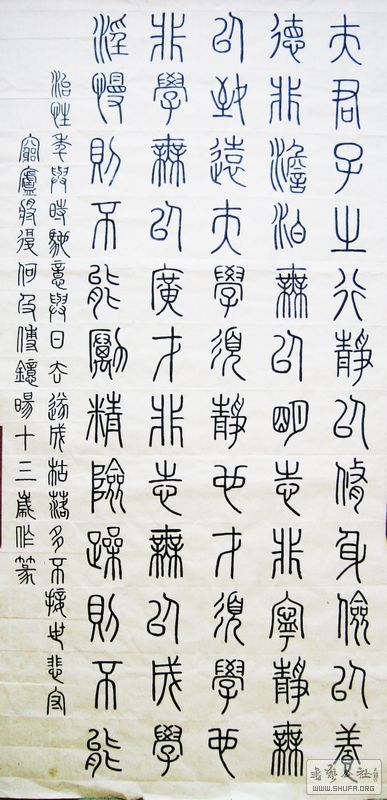 夫君子之行靜以脩身儉以養
德非澹泊無以明志非寧靜無
以致遠夫學須靜也才須學也
非學無以廣才非志無以成學
淫慢則不能勵精險躁則不能
治性年與時馳意與日去遂成枯落多不接世悲守
窮廬將復何及傅鐿暘十三歲作篆
WWW.SHUFA.ORG